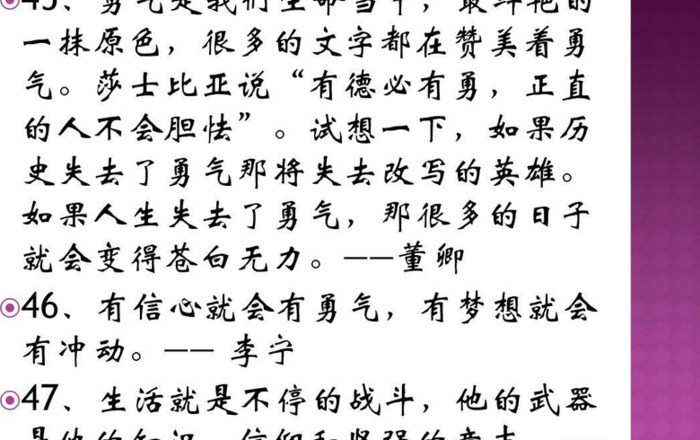 45、勇气是我们生命当中，最斗艳的
一抹原色，很多的文字都在赞美着勇
气。莎士比亚说“有德必有勇，正直
的人不会胆怯”。试想一下，如果历
史失去了勇气那将失去改写的英雄。
如果人生失去了勇气，那很多的日子
就会变得苍白无力。——董卿
46、有信心就会有勇气，有梦想就会
有冲动。—— 李宁
47、生活就是不停的战斗，他的武器
是他的知识、信仰和坚强的意志。